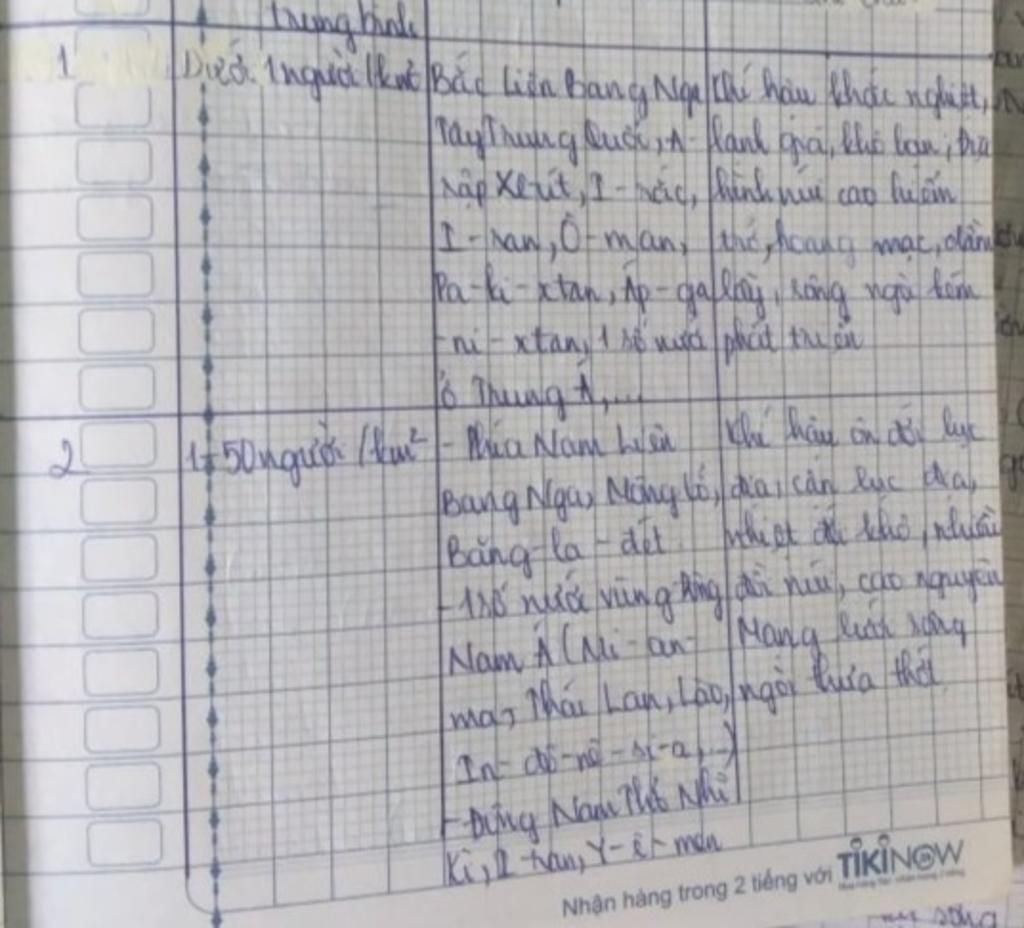 Trung bình
1 Dưới 1 người/km² Bắc Liên Bang Nga Khí hậu khắc nghiệt,
Tây Trung Quốc, Ả- lạnh giá, khô hạn, địa
rập Xêút, I-rắc, hình núi cao hiểm
I-ran, Ô-man, trở, hoang mạc, đầm
Pa-ki-xtan, Áp-ga lầy, sông ngòi kém
-ni-xtan, 1 số nước phát triển
ở Trung Á,...
2 1-50 người/km² - Phía Nam Liên Khí hậu ôn đới lục
Bang Nga, Mông Cổ, địa, cận lục địa,
Băng-la-đét. nhiệt đới khô, nhiều
- 1 số nước vùng Đông đồi núi, cao nguyên
Nam Á (Mi-an- Mạng lưới sông
ma, Thái Lan, Lào, ngòi thưa thớt
In-đô-nê-si-a,...)
- Đông Nam Thổ Nhĩ
Kì, I-ran, Y-ê-men
Nhận hàng trong 2 tiếng với TIKINOW
sông